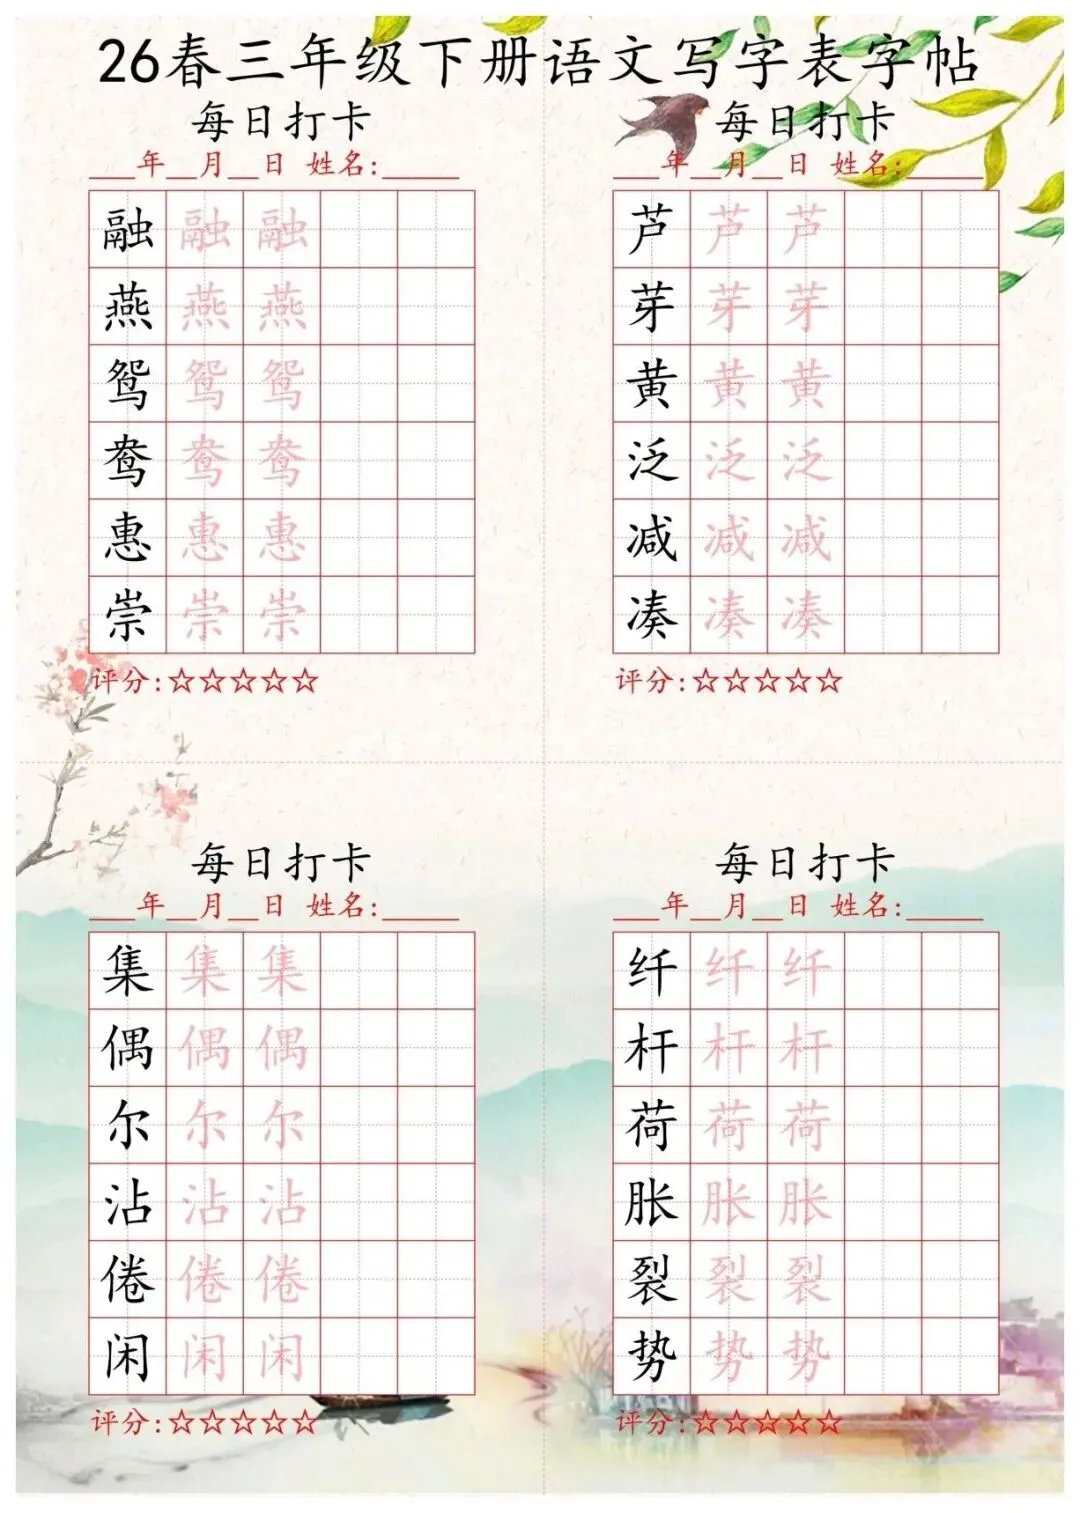 26春三年级下册语文写字表字帖
每日打卡
___年__月__日 姓名:_____
融 融 融
燕 燕 燕
鸳 鸳 鸳
鸯 鸯 鸯
惠 惠 惠
崇 崇 崇
评分:☆☆☆☆☆
每日打卡
___年__月__日 姓名:_____
芦 芦 芦
芽 芽 芽
黄 黄 黄
泛 泛 泛
减 减 减
凑 凑 凑
评分:☆☆☆☆☆
每日打卡
___年__月__日 姓名:_____
集 集 集
偶 偶 偶
尔 尔 尔
沾 沾 沾
倦 倦 倦
闲 闲 闲
评分:☆☆☆☆☆
每日打卡
___年__月__日 姓名:_____
纤 纤 纤
杆 杆 杆
荷 荷 荷
胀 胀 胀
裂 裂 裂
势 势 势
评分:☆☆☆☆☆